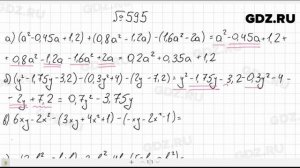 GDZ.RU
№ 595
а) (a²-0,45a+1,2)+(0,8a²-1,2a)-(1,6a²-2a)=a²-0,45a+1,2+
+0,8a²-1,2a-1,6a²+2a=0,2a²+0,35a+1,2
б) (y²-1,75y-3,2)-(0,3y²+4)-(2y-7,2)=y²-1,75y-3,2-0,3y²-4-
-2y+7,2=0,7y²-3,75y
в) 6xy-2x²-(3xy+4x²+1)-(-xy-2x²-1)=
GDZ.RU